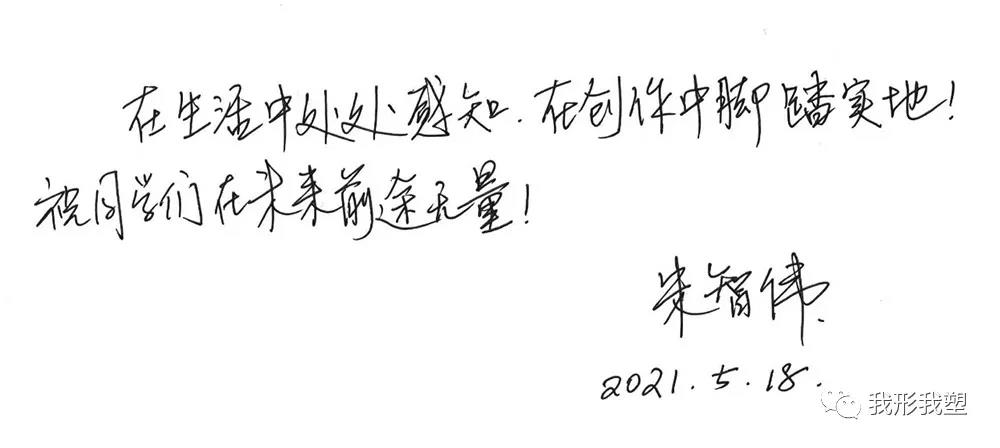 在生活中处处感知.在创作中脚踏实地!
祝同学们在未来前途无量!
朱智伟.
2021.5.18.
我形我塑